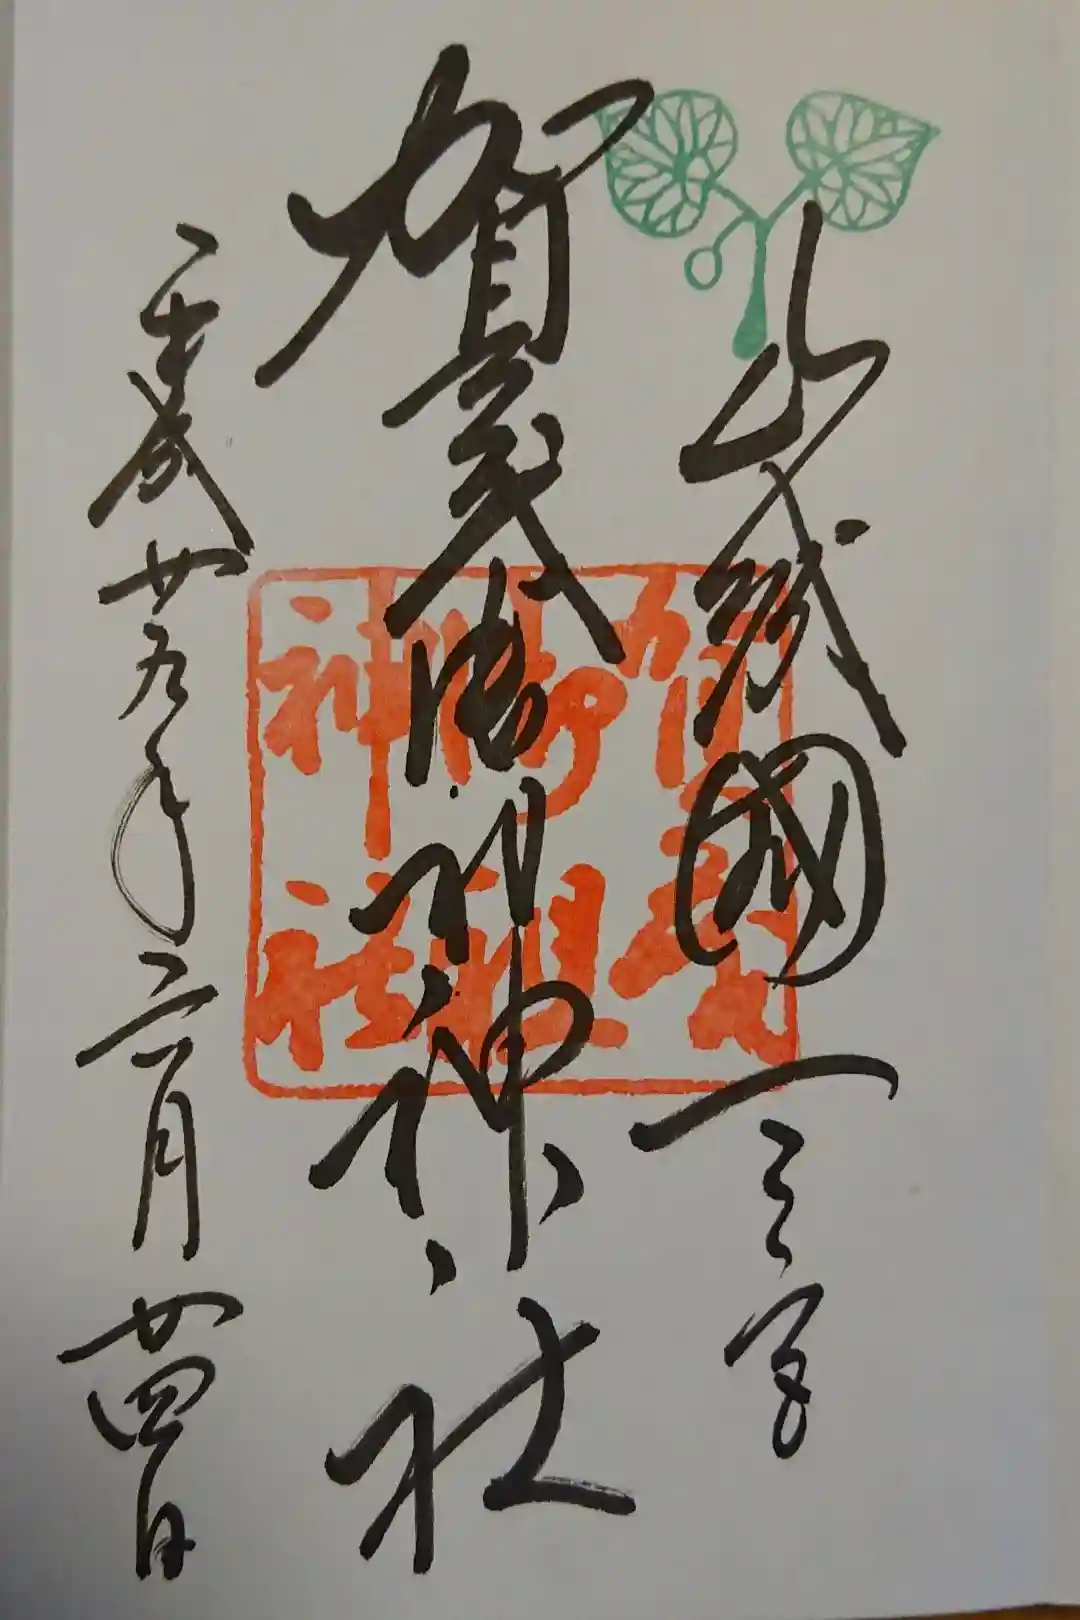 山城國一之宮
賀茂御祖神社
平成廿五年二月廿四日
賀茂
御祖
神社